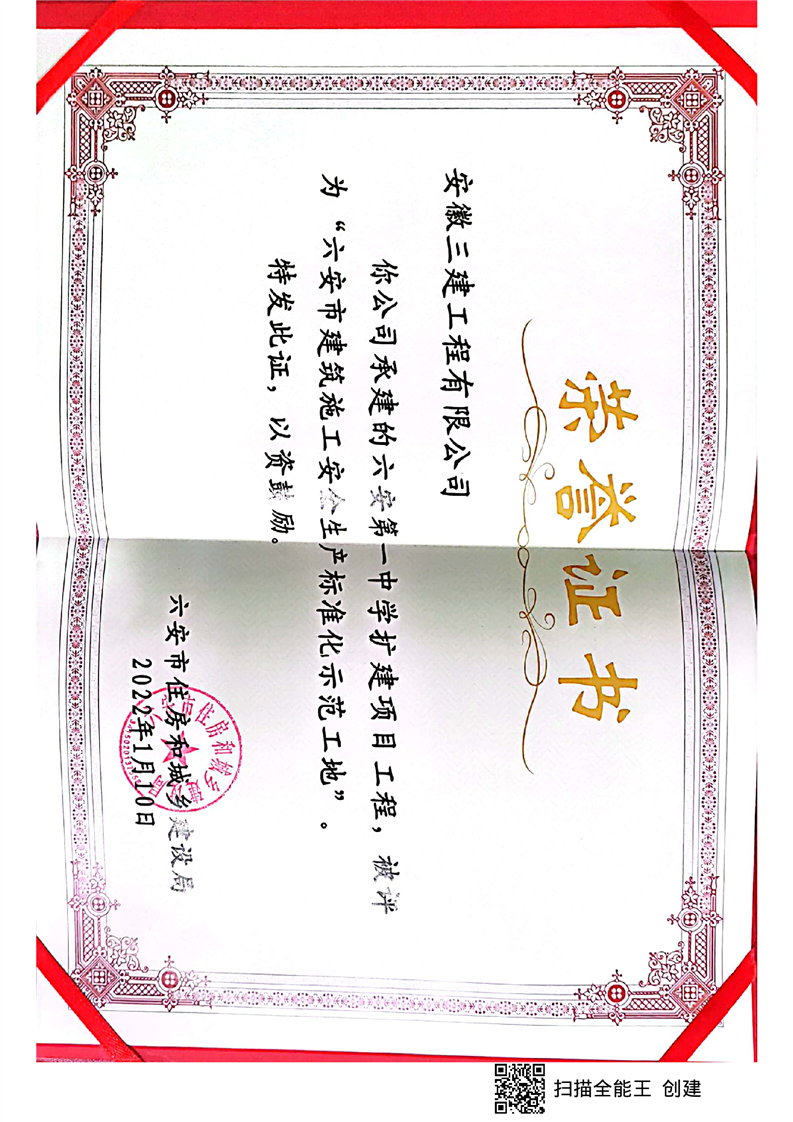 荣誉证书
安徽三建工程有限公司
你公司承建的六安第一中学扩建项目工程，被评
为“六安市建筑施工安全生产标准化示范工地”。
特发此证，以资鼓励。
六安市住房和城乡建设局
2022年1月10日
扫描全能王 创建